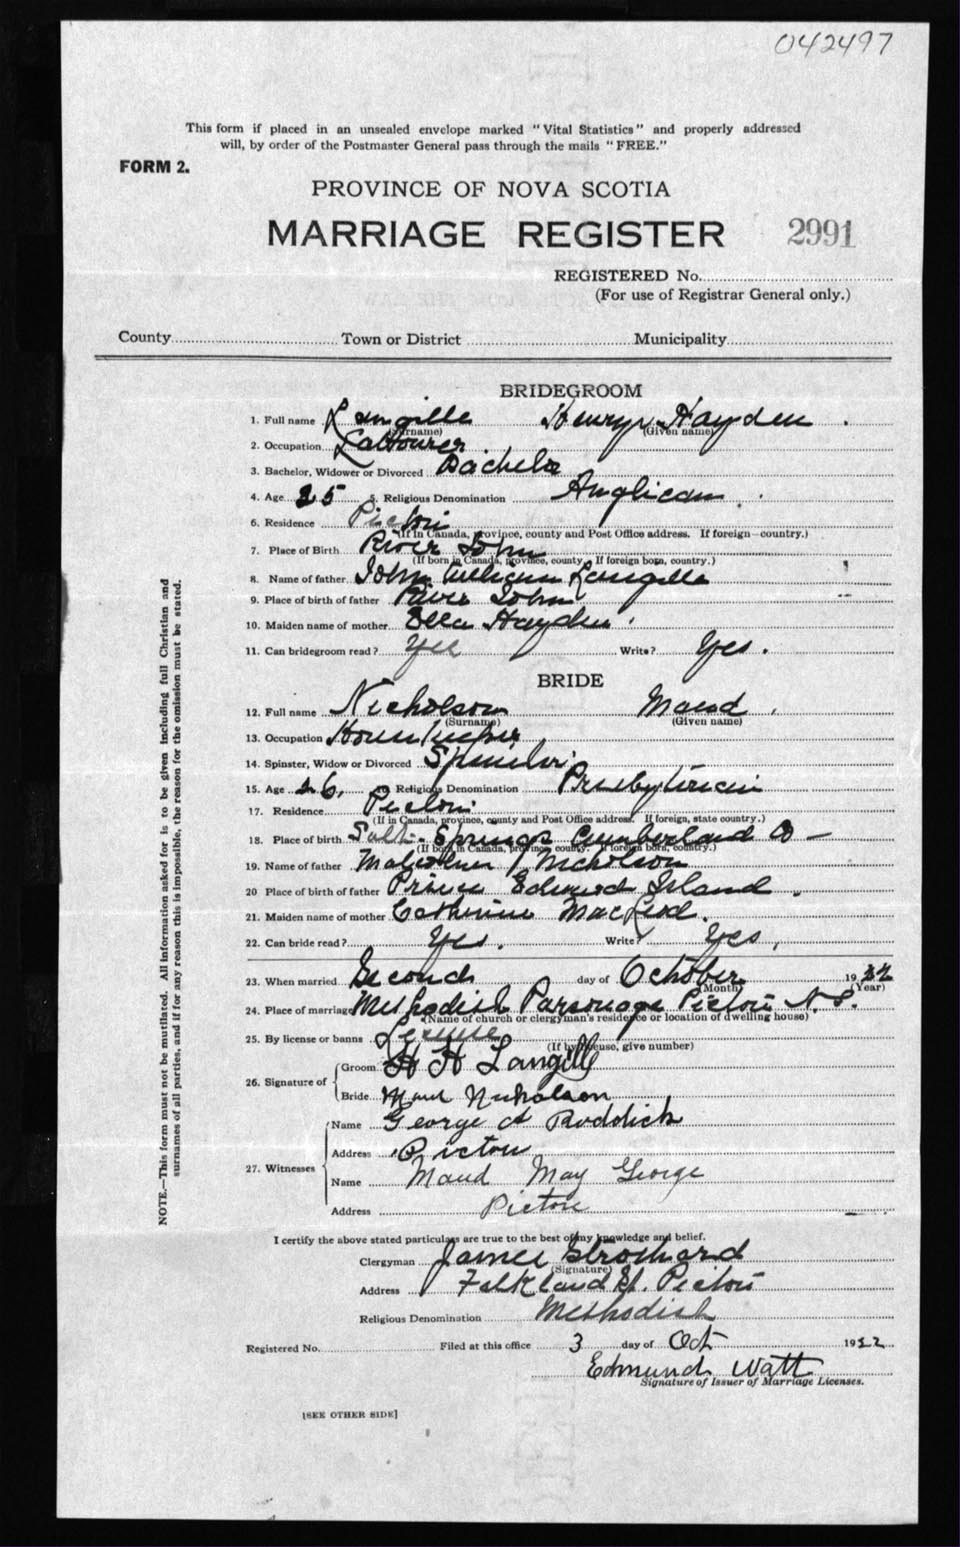 042497
This form if placed in an unsealed envelope marked "Vital Statistics" and properly addressed
will, by order of the Postmaster General pass through the mails "FREE."
FORM 2.
PROVINCE OF NOVA SCOTIA
MARRIAGE REGISTER 2991
REGISTERED No.
(For use of Registrar General only.)
County Town or District Municipality
BRIDEGROOM
1. Full name Langille Henry Hayden
(Surname) (Given name)
2. Occupation Labourer
3. Bachelor, Widower or Divorced Bachelor
4. Age 25 5. Religious Denomination Anglican
6. Residence Pictou
(If in Canada, province, county and Post Office address. If foreign—country.)
7. Place of Birth River John
(If born in Canada, province, county. If foreign born, country.)
8. Name of father John William Langille
9. Place of birth of father River John
10. Maiden name of mother Ella Hayden
11. Can bridegroom read? Yes Write? Yes.
BRIDE
12. Full name Nicholson Maud
(Surname) (Given name)
13. Occupation Housekeeper
14. Spinster, Widow or Divorced Spinster
15. Age 26. 16. Religious Denomination Presbyterian
17. Residence Pictou
(If in Canada, province, county and Post Office address. If foreign, state country.)
18. Place of birth Salt-Springs Cumberland Co —
(If born in Canada, province county. If foreign born, country.)
19. Name of father Nicholson
20 Place of birth of father Prince Edward Island.
21. Maiden name of mother Catherine MacLeod.
22. Can bride read? Yes. Write? Yes,
23. When married Second day of October 1922
(Month) (Year)
24. Place of marriage Methodist Parsonage Pictou N.S.
(Name of church or clergyman's residence or location of dwelling house)
25. By license or banns License
(If by license, give number)
26. Signature of Groom H H Langille
Bride Maud Nicholson
27. Witnesses Name George A Roddick
Address Pictou
Name Maud May George
Address Pictou
I certify the above stated particulars are true to the best of my knowledge and belief.
Clergyman James Strothard
(Signature)
Address Falkland St. Pictou
Religious Denomination Methodist
Registered No. Filed at this office 3 day of Oct 1922
Edmund Watt
Signature of Issuer of Marriage Licenses.
[SEE OTHER SIDE]
NOTE.—This form must not be mutilated. All information asked for is to be given including full Christian and
surnames of all parties, and if for any reason this is impossible, the reason for the omission must be stated.